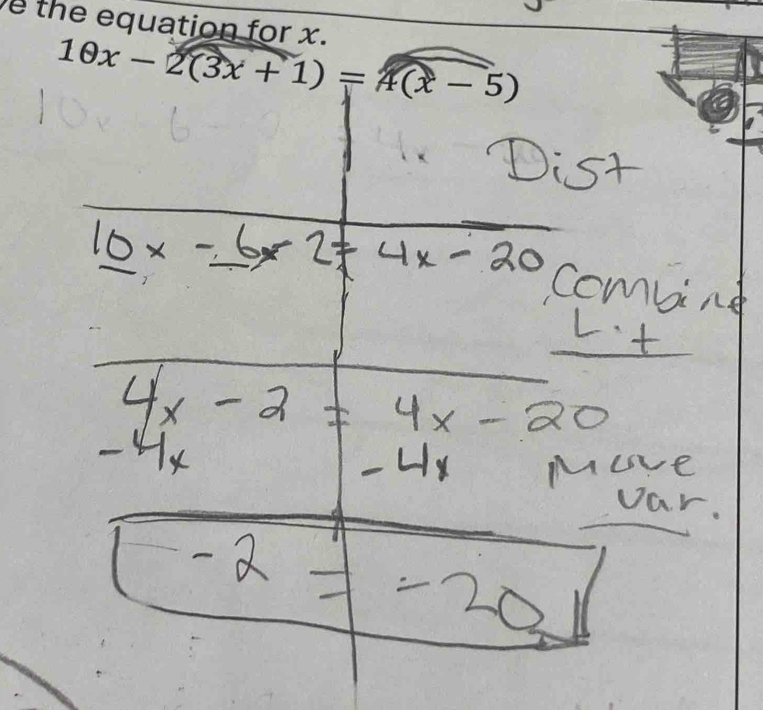 e the equation for x.
10x − 2(3x + 1) = 4(x − 5)
Dist
10x - 6x 2 = 4x - 20
Combine
L.t
4x - 2 = 4x - 20
-4x -4x
Move
var.
-2 = -20